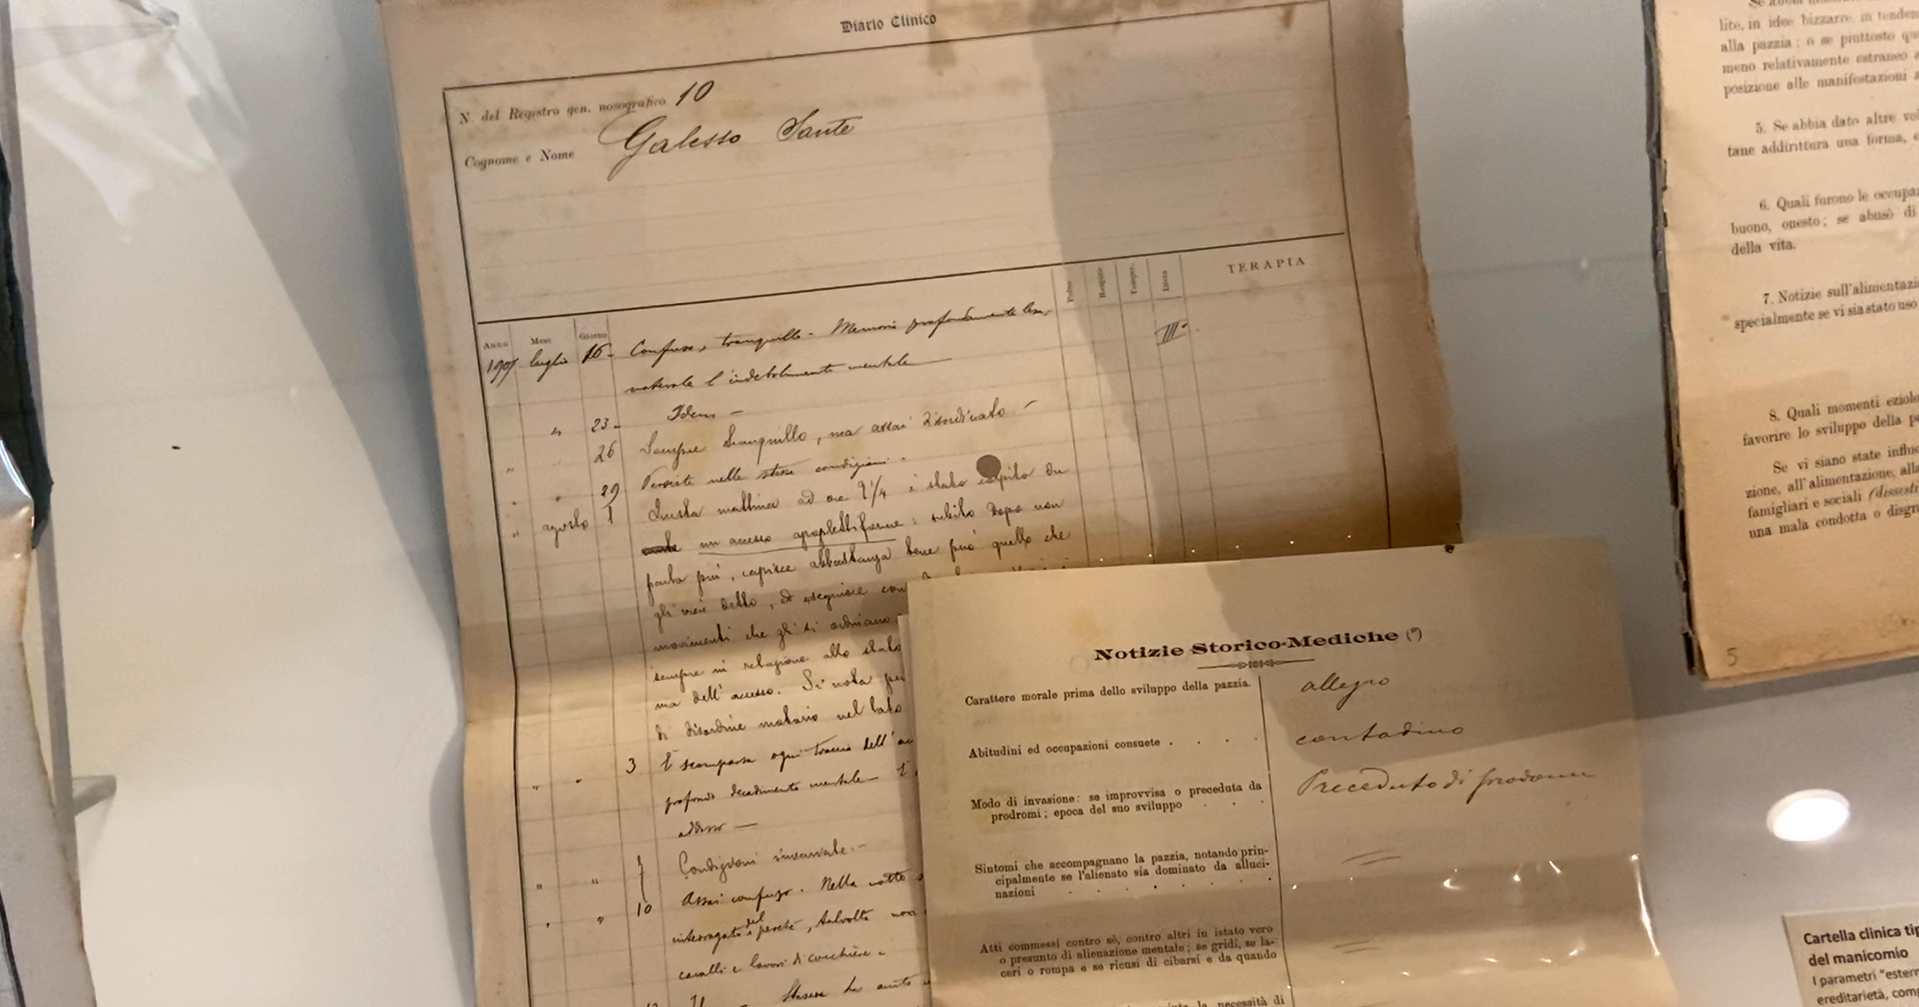 Diario Clinico
N. del Registro gen. nosografico 10
Cognome e Nome Galesso Sante
Anno Mese Giorno Polso Respiro Temper. TERAPIA
1907 luglio 16 - Confuso, tranquillo - Memoria profondamente
l'indebolimento mentale
" 23 - Idem -
" " 26 Sempre tranquillo, ma assai disordinato -
" " 29 Persiste nelle stesse condizioni -
" agosto 1 Questa mattina ad ore 9 1/4 è stato colpito da
un accesso apoplettiforme: subito dopo non
parla più, capisce abbastanza bene però quello che
gli vien detto, ed eseguisce con
movimenti che gli si ordinano
sempre in relazione allo stato
ma dell'accesso. Si nota
di disordine motorio nel lato
" " 3 È scomparsa ogni traccia dell'
profondo decadimento mentale -
addosso -
" " 7 Condizioni invariate -
" " 10 Assai confuso. Nella notte
interrogato del perché, talvolta non
cavalli e lavori di cocchiere -
Stasera ha avuto
Notizie Storico-Mediche (*)
Carattere morale prima dello sviluppo della pazzia. allegro
Abitudini ed occupazioni consuete . . . . contadino
Modo di invasione: se improvvisa o preceduta da Preceduto di prodomi
prodromi; epoca del suo sviluppo . . .
Sintomi che accompagnano la pazzia, notando prin-
cipalmente se l'alienato sia dominato da alluci-
nazioni . . . . . . .
Atti commessi contro sè, contro altri in istato vero
o presunto di alienazione mentale; se gridi, se la-
ceri o rompa e se ricusi di cibarsi e da quando
la necessità di
lite, in idee bizzarre, in tenden
alla pazzia; o se piuttosto qu
meno relativamente estraneo a
posizione alle manifestazioni a
5. Se abbia dato altre vol
tane addirittura una forma, e
6. Quali furono le occupa
buono, onesto; se abusò di
della vita.
7. Notizie sull'alimentazi
specialmente se vi sia stato uso
8. Quali momenti eziolo
favorire lo sviluppo della p
Se vi siano state influe
zione, all'alimentazione, alla
famigliari e sociali (dissest
una mala condotta o disgr
5
Cartella clinica tip
del manicomio
I parametri "estern
ereditarietà, comp